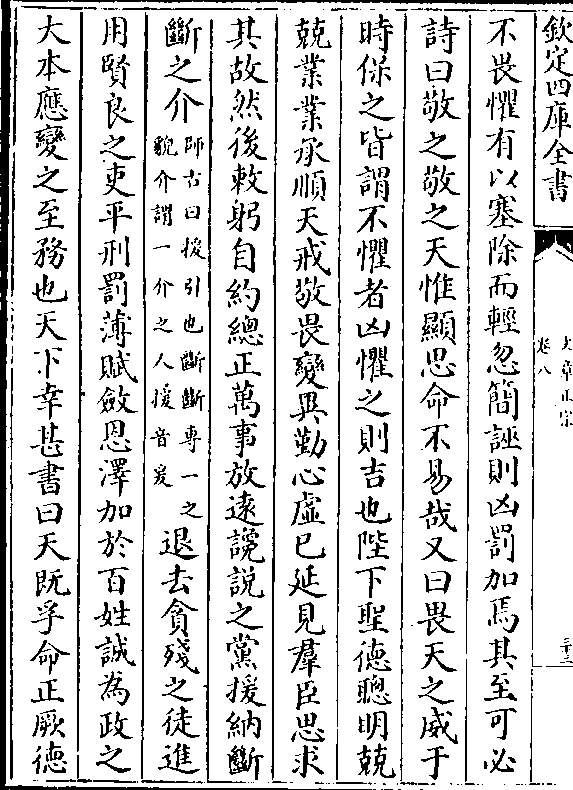 欽定四庫全書
文章正宗
卷八
三十二
不畏懼有以塞除而輕忽簡誣則凶罰加焉其至可必
詩曰敬之敬之天惟顯思命不易哉又曰畏天之威于
時保之皆謂不懼者凶懼之則吉也陛下聖德聰明兢
兢業業承順天戒敬畏變異勤心虛已延見羣臣思求
其故然後敕躬自約總正萬事放遠讒説之黨援納斷
斷之介師古曰援引也斷斷専一之
貌介謂一介之人援音爰退去貪殘之徒進
用賢良之吏平刑罰薄賦斂恩澤加於百姓誠為政之
大本應變之至務也天下幸甚書曰天既孚命正厥德